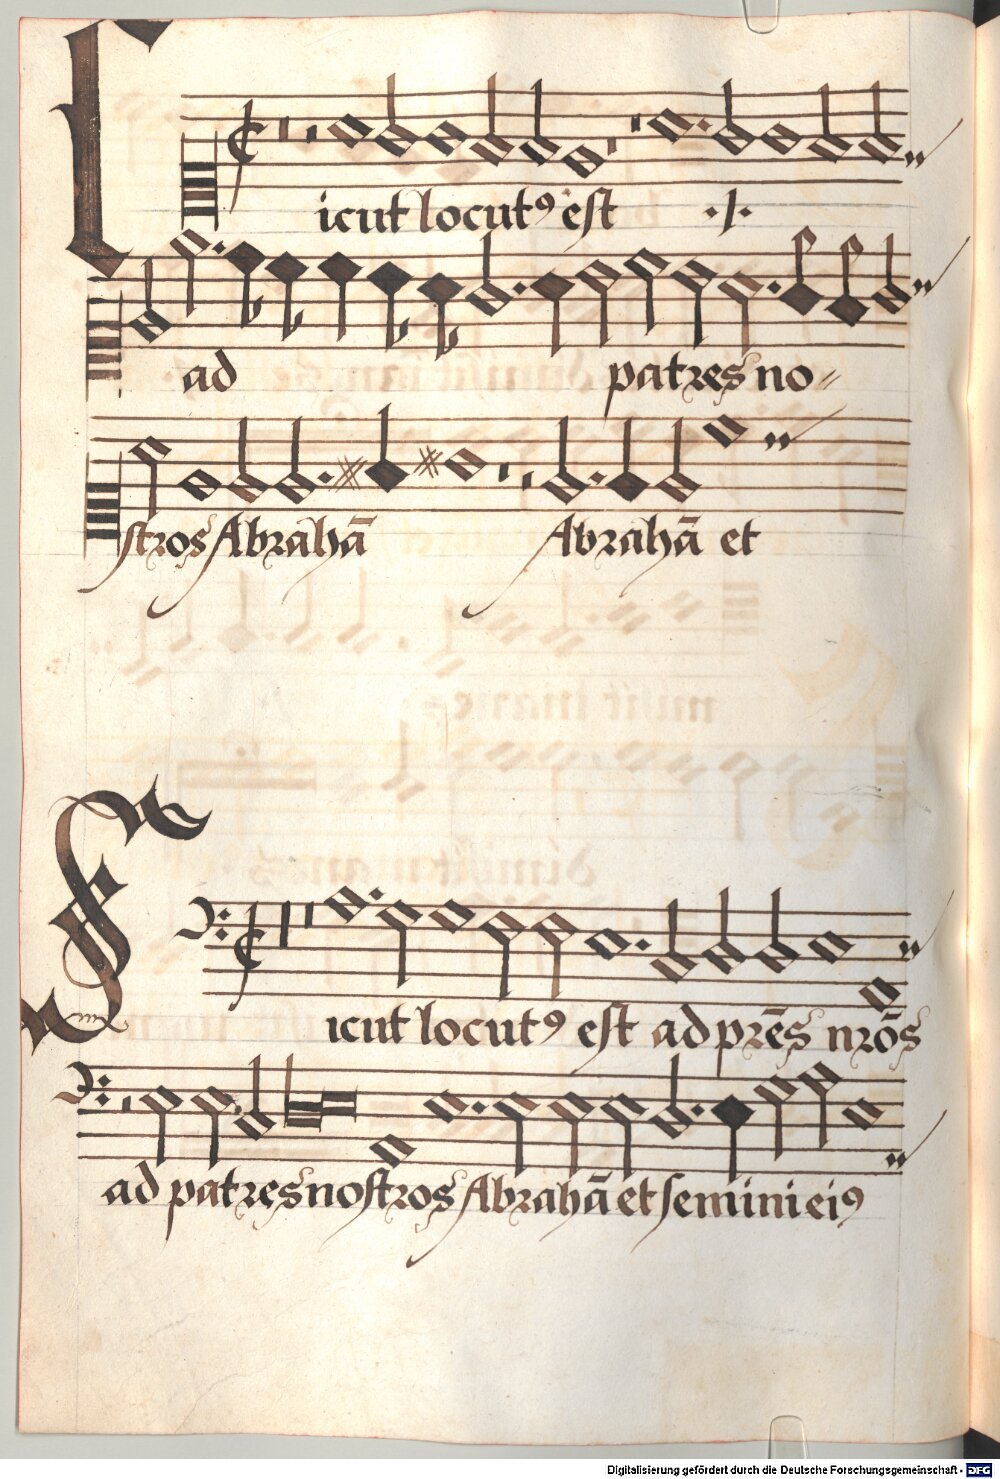 Sicut locutꝰ est ·/·
ad patres no⸗
stros Abrahā Abrahā et
Sicut locutꝰ est ad pr̄es nr̄os
ad patres nostros Abrahā et semini eiꝰ
Digitalisierung gefördert durch die Deutsche Forschungsgemeinschaft - DFG